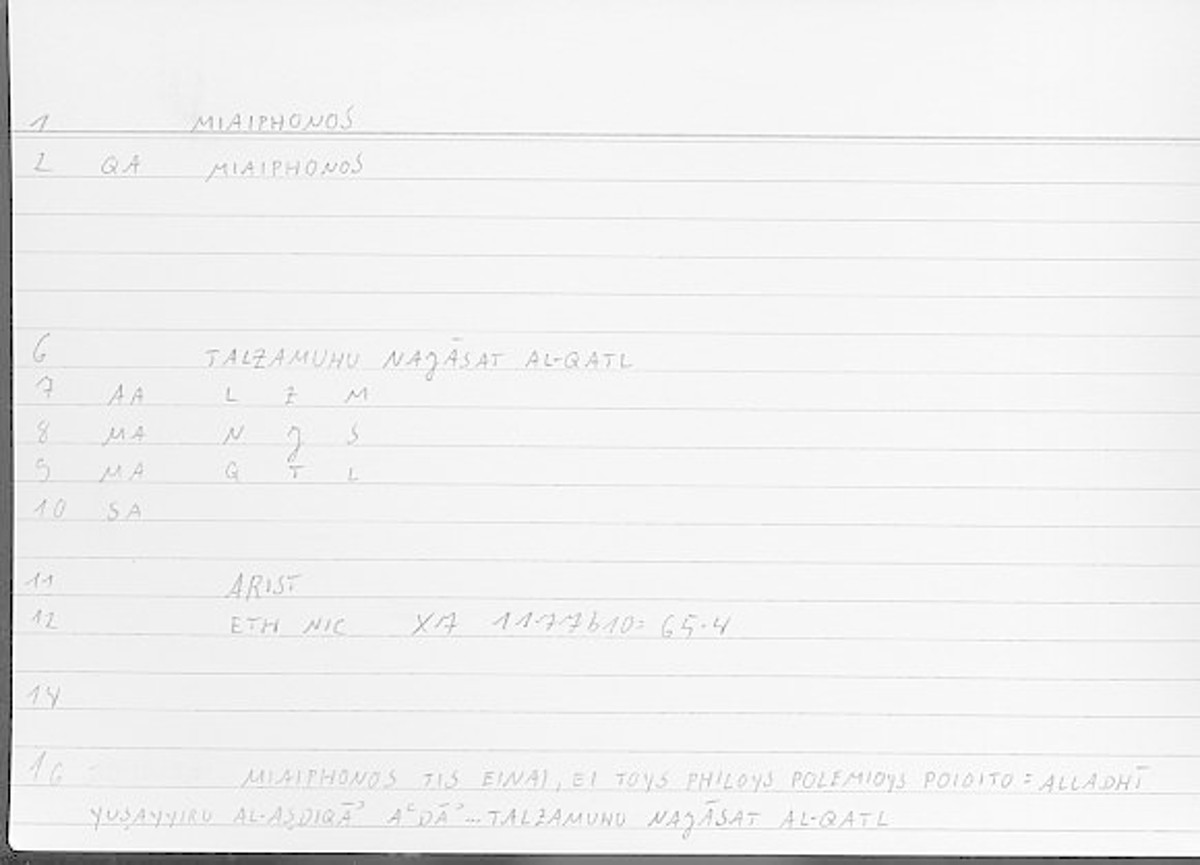 1 MIAIPHONOS
2 QA MIAIPHONOS
6 TALZAMUHU NAJĀSAT AL-QATL
7 AA L Z M
8 MA N J S
9 MA Q T L
10 SA
11 ARIST
12 ETH NIC X7 1177b10= 65.4
14
16 MIAIPHONOS TIS EINAI, EI TOYS PHILOYS POLEMIOYS POIOITO = ALLADHĪ
YUṢAYYIRU AL-AṢDIQĀʾ AʿDĀʾ... TALZAMUHU NAJĀSAT AL-QATL